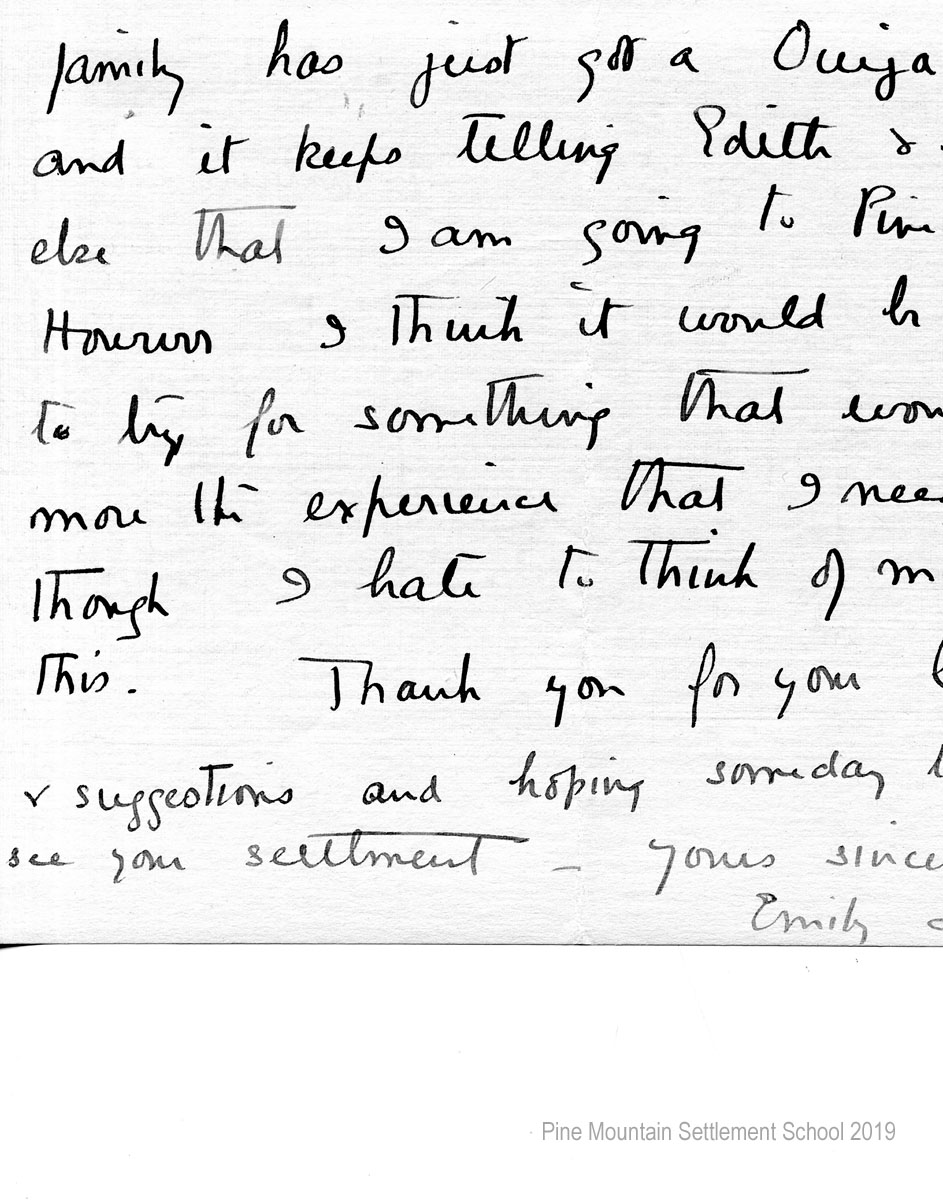 family has just got a Ouija
and it keeps telling Edith &
else that I am going to Pine
However I think it would b
to try for something that wou
more the experience that I nee
Though I hate to think of m
this. Thank you for your
& suggestions and hoping someday t
see your settlment – yours since
Emily
Pine Mountain Settlement School 2019